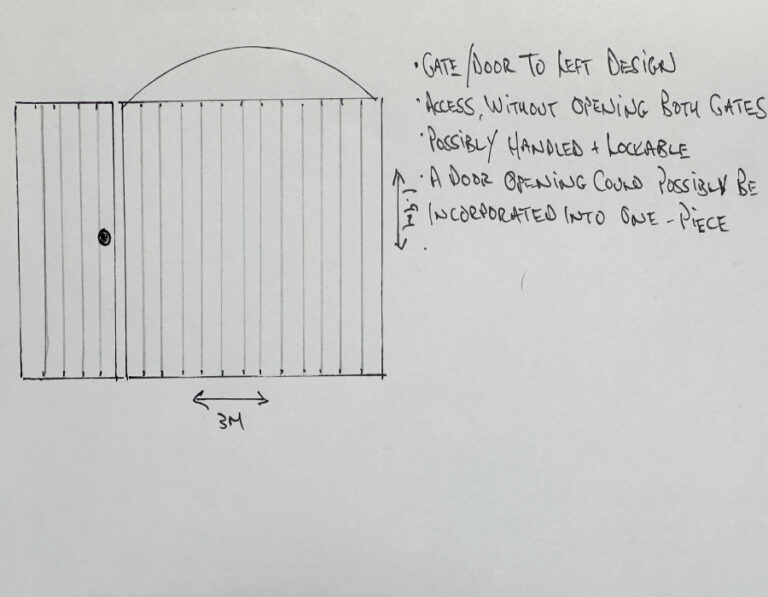 · GATE/DOOR TO LEFT DESIGN
· ACCESS, WITHOUT OPENING BOTH GATES
· POSSIBLY HANDLED + LOCKABLE
· A DOOR OPENING COULD POSSIBLY BE
INCORPORATED INTO ONE-PIECE
·
3M